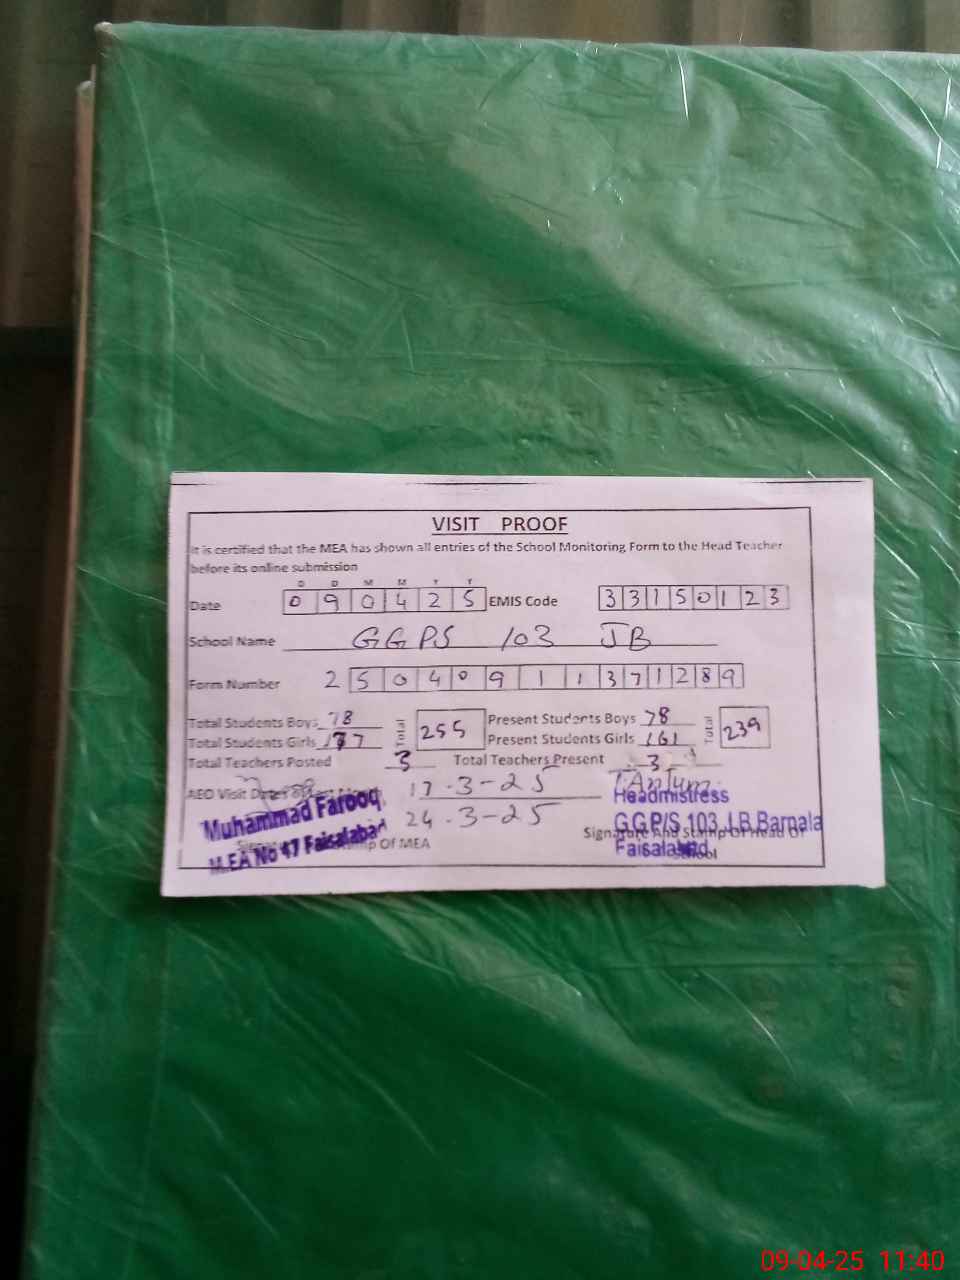 VISIT PROOF
It is certified that the MEA has shown all entries of the School Monitoring Form to the Head Teacher
before its online submission
D D M M Y Y
Date 0 9 0 4 2 5 EMIS Code 3 3 1 5 0 1 2 3
School Name GGPS 103 JB
Form Number 2 5 0 4 0 9 1 1 3 7 1 2 8 9
Total Students Boys 78 Total 255 Present Students Boys 78 Total 239
Total Students Girls 177 Present Students Girls 161
Total Teachers Posted 3 Total Teachers Present 3
AEO Visit Dates 17-3-25
24-3-25
Muhammad Farooq
M.EA No 47 Faisalabad
Of MEA
Headmistress
G.G.P/S 103 J.B Barnala
Faisalabad
Signature And Stamp Of Head Of
School
09-04-25 11:40